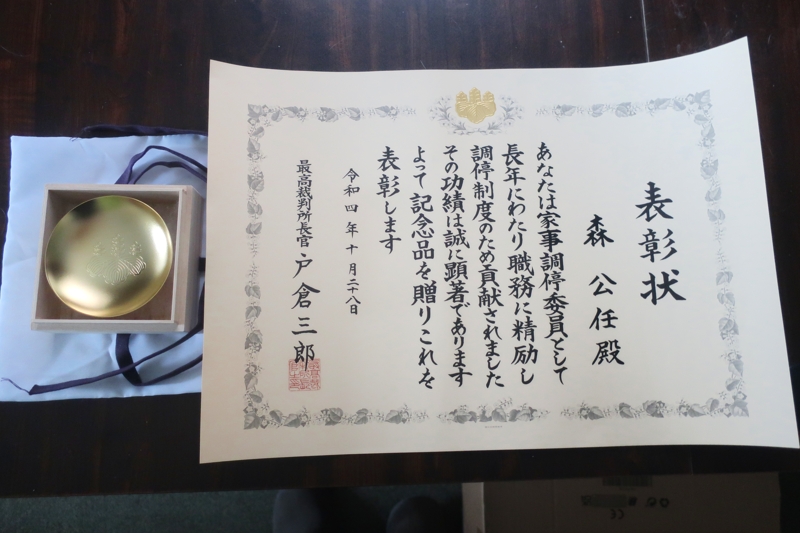 表彰状
森公任殿
あなたは家事調停委員として
長年にわたり職務に精励し
調停制度のため貢献されました
その功績は誠に顕著であります
よって記念品を贈りこれを
表彰します
令和四年十月二十八日
最高裁判所長官戸倉三郎